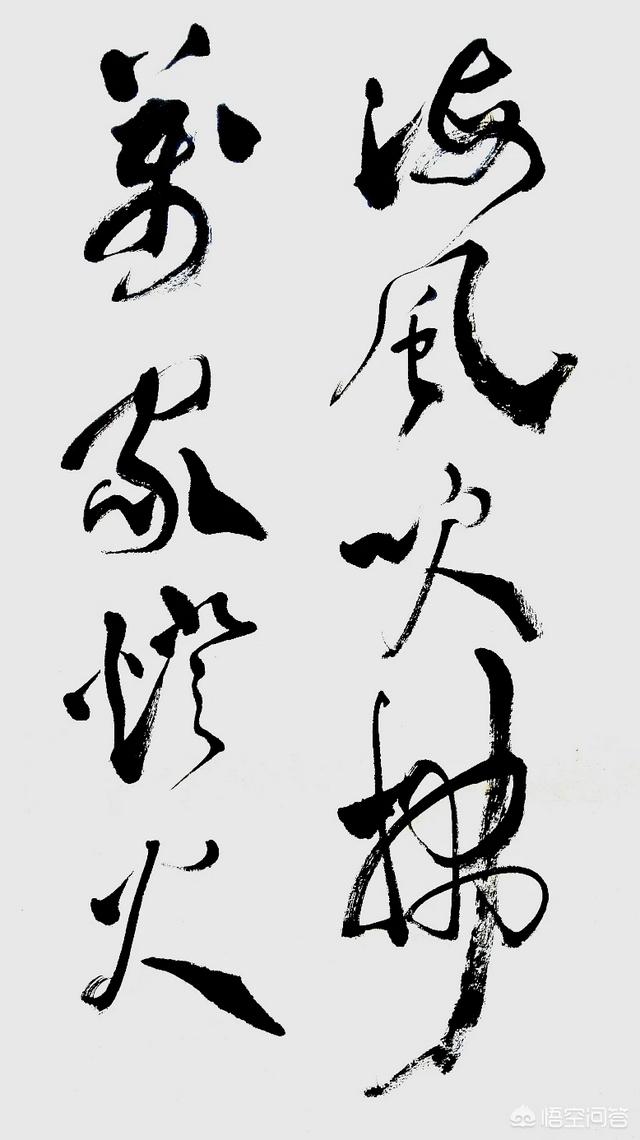 海風吹拂
萬家燈火
悟空问答